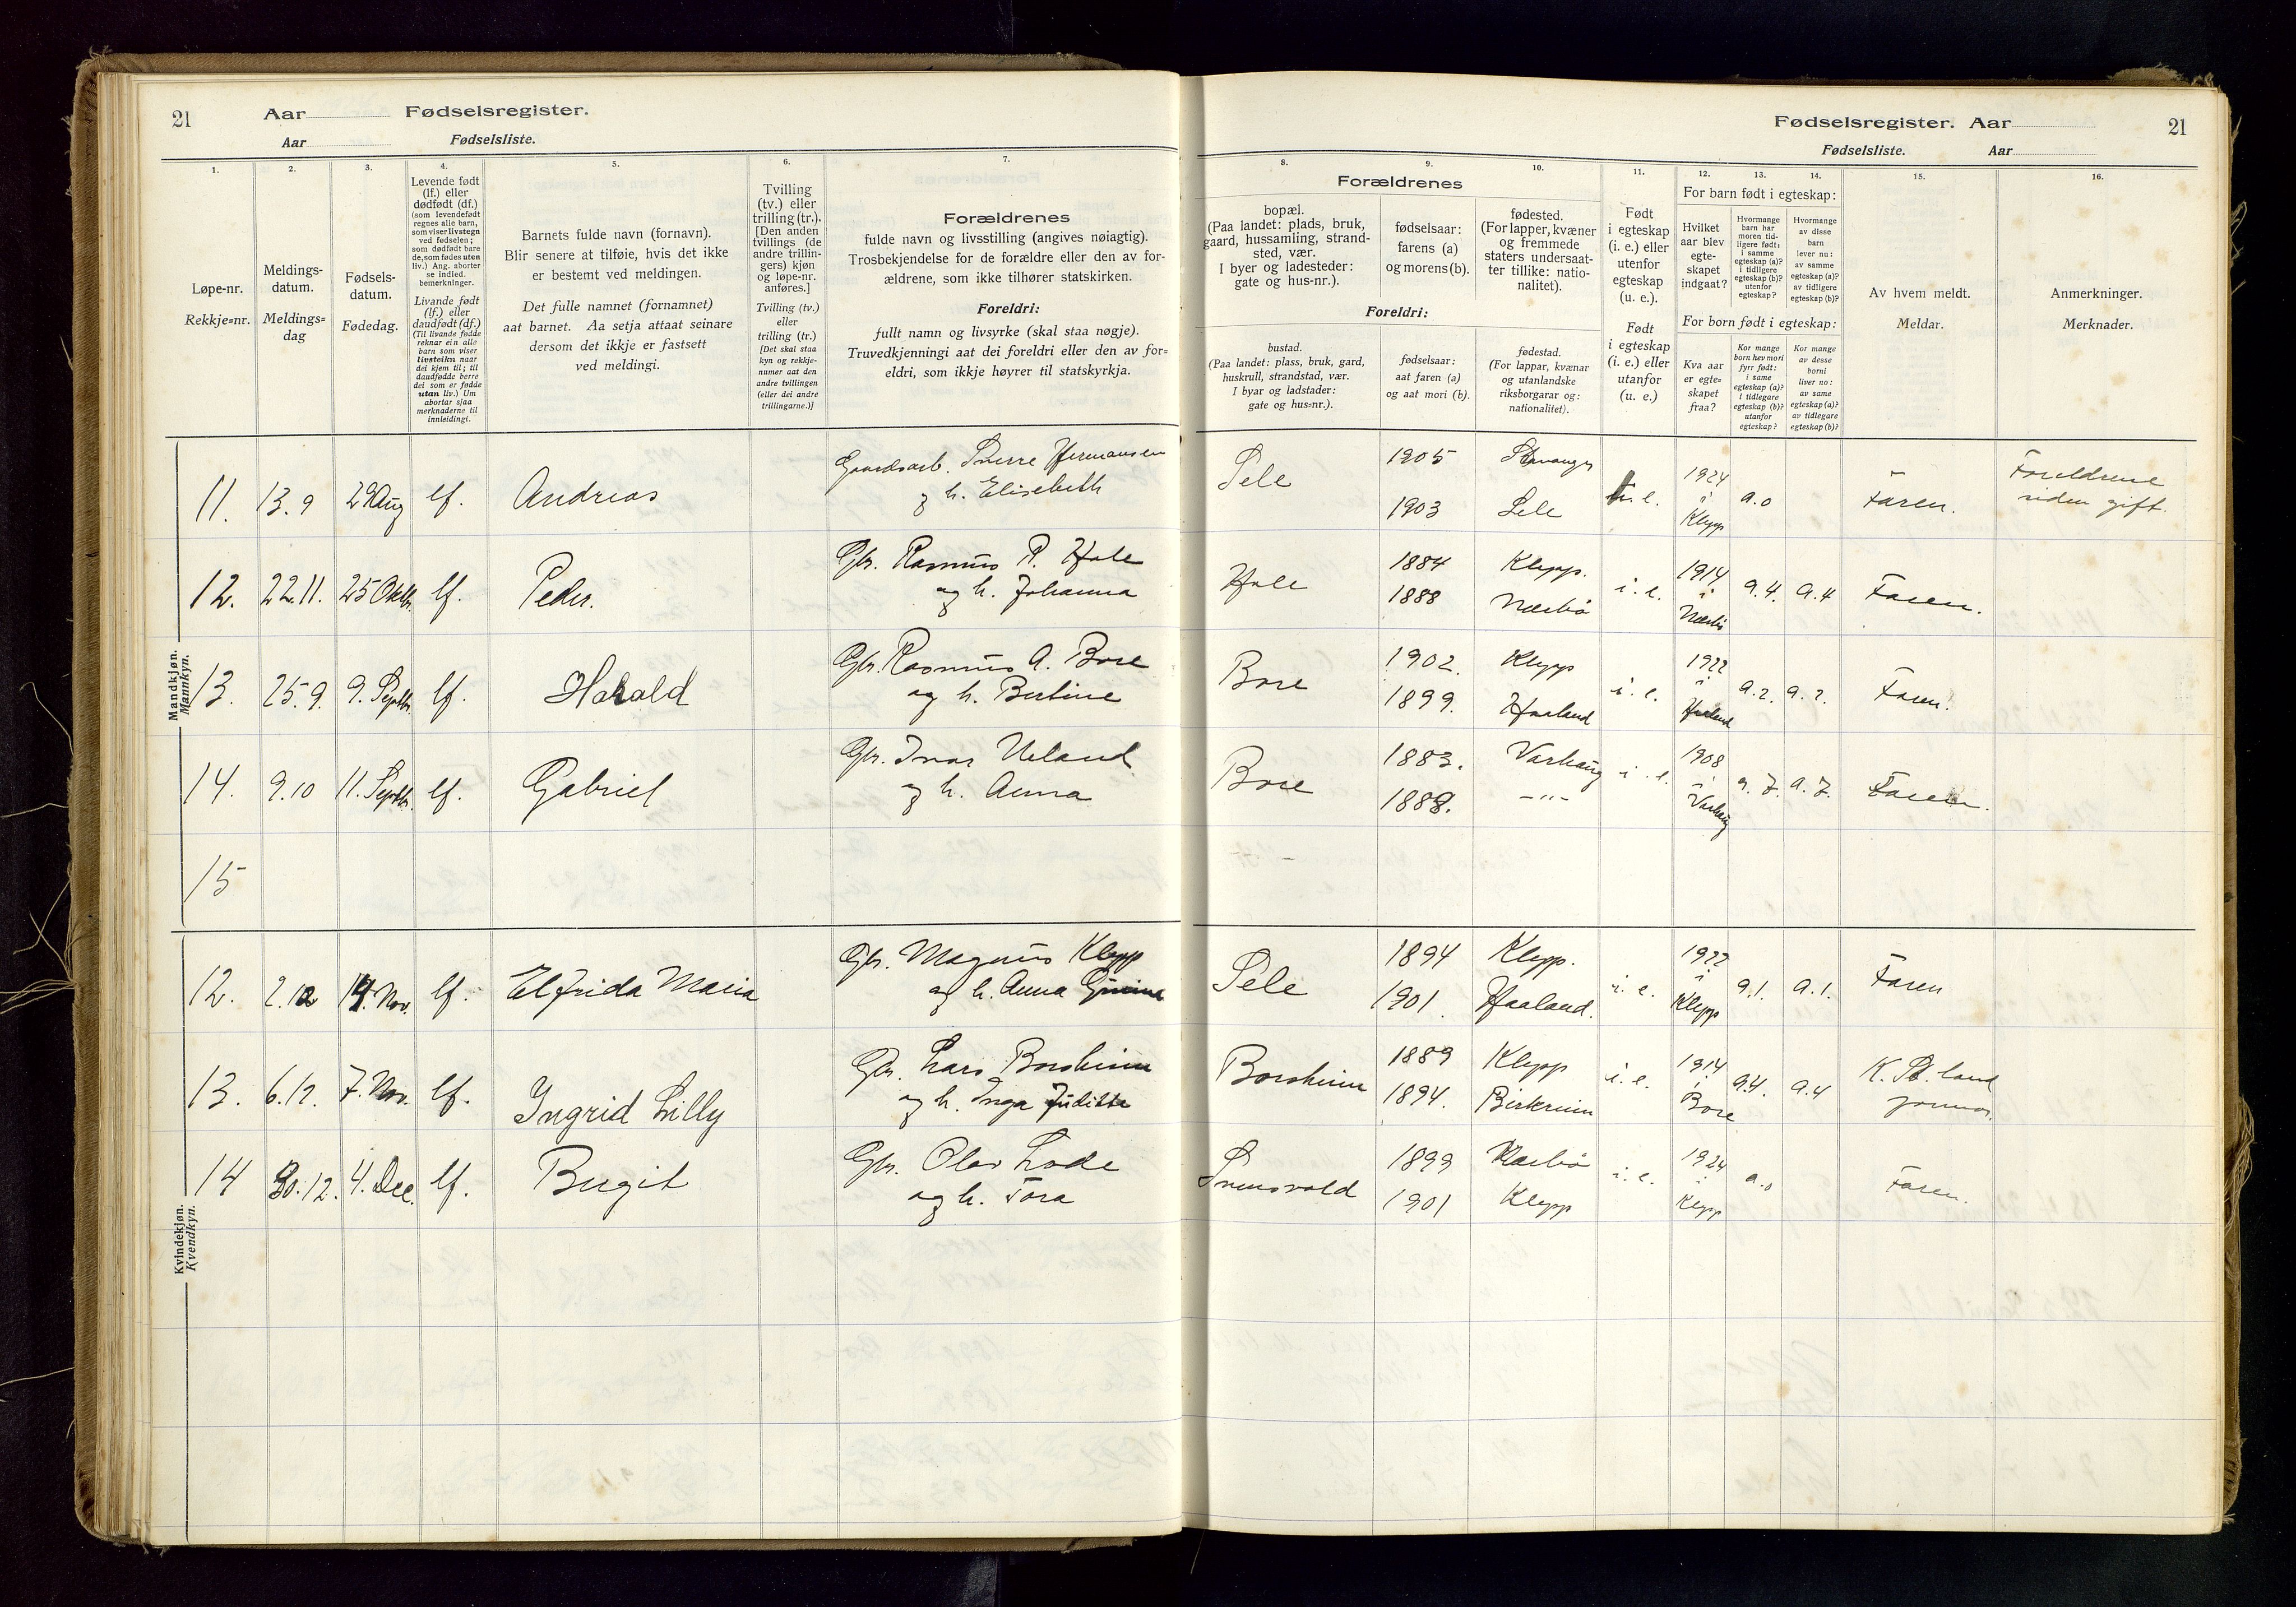 21 Aar Fødselsregister.
Aar Fødselsliste.
Fødselsregister. Aar 21
Fødselsliste. Aar
1.
Løpe-nr.
Rekkje=nr.
2.
Meldings-
datum.
Meldings=
dag
3.
Fødsels-
datum.
Fødedag.
4.
Levende født
(lf.) eller
dødfødt (df.)
(som levendefødt
regnes alle barn,
som viser livstegn
ved fødselen;
som dødfødt bare
de, som fødes uten
liv.) Ang. aborter
se indled.
bemerkninger.
Livande født
(lf.) eller
daudfødt (df.)
(Til livande fødde
reknar ein alle
barn som viser
livsteikn naar
dei kjem til; til
daudfødde berre
dei som er fødde
utan liv.) Um
abortar sjaa
merknaderne til
innleidingi.
5.
Barnets fulde navn (fornavn).
Blir senere at tilføie, hvis det ikke
er bestemt ved meldingen.
Det fulle namnet (fornamnet)
aat barnet. Aa setja attaat seinare
dersom det ikkje er fastsett
ved meldingi.
6.
Tvilling
(tv.) eller
trilling (tr.).
[Den anden
tvillings (de
andre trillin-
gers) kjøn
og løpe-nr.
anføres.]
Tvilling (tv.)
eller
trilling (tr.)
[Det skal staa
kyn og rekkje-
numer aat den
andre tvillingen
(eller dei andre
trillingarne.)]
7.
Forældrenes
fulde navn og livsstilling (angives nøiagtig).
Trosbekjendelse for de forældre eller den av for-
ældrene, som ikke tilhører statskirken.
Foreldri:
fullt namn og livsyrke (skal staa nøgje).
Truvedkjenningi aat dei foreldri eller den av for=
eldri, som ikkje høyrer til statskyrkja.
Forældrenes
8.
bopæl.
(Paa landet: plads, bruk,
gaard, hussamling, strand-
sted, vær.
I byer og ladesteder:
gate og hus-nr.).
9.
fødselsaar:
farens (a)
og morens (b).
10.
fødested.
(For lapper, kvæner
og fremmede
staters undersaat-
ter tillike: natio-
nalitet).
Foreldri:
bustad.
(Paa landet: plass, bruk, gard,
huskrull, strandstad, vær.
I byar og ladstader:
gate og hus=nr.).
fødselsaar:
aat faren (a)
og aat mori (b).
fødestad.
(For lappar, kvænar
og utanlandske
riksborgarar og:
nationalitet).
11.
Født
i egteskap
(i. e.) eller
utenfor
egteskap
(u. e.).
Født
i egteskap
(i. e.) eller
utanfor
(u. e.)
12. 13. 14.
For barn født i egteskap:
Hvilket
aar blev
egte-
skapet
indgaat?
Hvormange
barn har
moren tid-
ligere født:
i samme
egteskap (a)?
i tidligere
egteskap (b)?
utenfor
egteskap?
Hvormange
av disse
barn
lever nu:
av samme
egteskap (a)?
av tidligere
egteskap (b)?
For born født i egteskap:
Kva aar
er egte=
skapet
fraa?
Kor mange
born hev mori
fyrr født:
i same
egteskap (a)?
i tidlegare
egteskap (b)?
utanfor
egteskap?
Kor mange
av desse
borni
liver no:
av same
egteskap (a)?
av tidlegare
egteskap (b)?
15.
Av hvem meldt.
Meldar.
16.
Anmerkninger.
Merknader.
Mandkjøn.
Mannkyn.
11. 13.9 29 Aug lf. Andreas Gaardsarb. Sverre Hermansen
og h. Elisebeth
Sele 1905 Stavanger
1903 Sele
i. e. 1924
i
Klepp
a.o Faren. Foreldrene
siden gift.
12. 22.11. 25 Oktb. lf. Peder. Gbr. Rasmus P. Hole
og h. Johanna
Hole 1884 Klepp.
1888 Nærbø
i. e. 1914
i
Nærbø
a.4. a.4 Faren.
13. 25.9. 9. Septb. lf. Harald Gbr. Rasmus A. Bore
og h. Bertine
Bore 1902. Klepp
1899. Haaland
i. e. 1922
i
Haaland
a.2. a.2. Faren.
14. 9.10 11. Septb. lf. Gabriel Gbr. Ivar Ueland
og h. Anna
Bore 1883. Varhaug
1888. -"-
i. e. 1908
i
Varhaug
a.7. a.7. Faren.
15
Kvindekjøn.
Kvendkyn.
12. 2.12 14. Nov. lf. Elfrida Maria Gbr. Magnus Klepp
og h. Anna Gurine
Sele 1894 Klepp.
1901. Haaland.
i. e. 1922
i
Klepp
a.1. a.1. Faren
13. 6.12. 7. Nov. lf. Ingrid Lilly Gbr. Lars Borsheim
og h. Inga Juditte
Borsheim 1889 Klepp
1894. Birkreim
i. e. 1914
i
Bore
a.4. a.4
14 30.12. 4. Dec. lf. Birgit Gbr. Olav Lode
og h. Tora
1899 Nærbø
1901 Klepp
i. e. 1924
i
Klepp
a.o Faren.